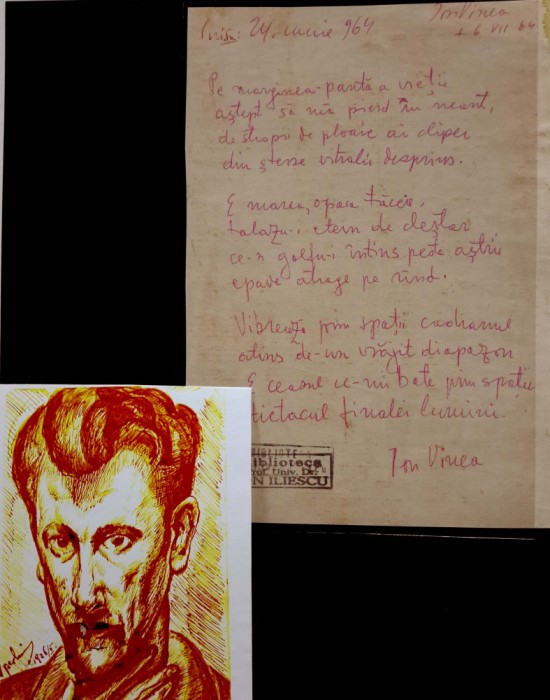 24. iunie 964
Ion Vinea
6 VII 64
Pe marginea-pantă a vieții
aștept să mă pierd în neant,
de stropii de ploaie ai clipei
din șterse vitralii desprins.
E marea, opaca tăcere,
talazu-i etern de cleștar
ce-n golfu-i întins peste aștrii
epave atrage pe rînd.
Vibrează prin spații cadranul
atins de-un vrăjit diapazon
E ceasul ce-mi bate prin spații
tictacul finalei lumini.
Ion Vinea
Biblioteca
Prof. Univ. Dr.
ION ILIESCU